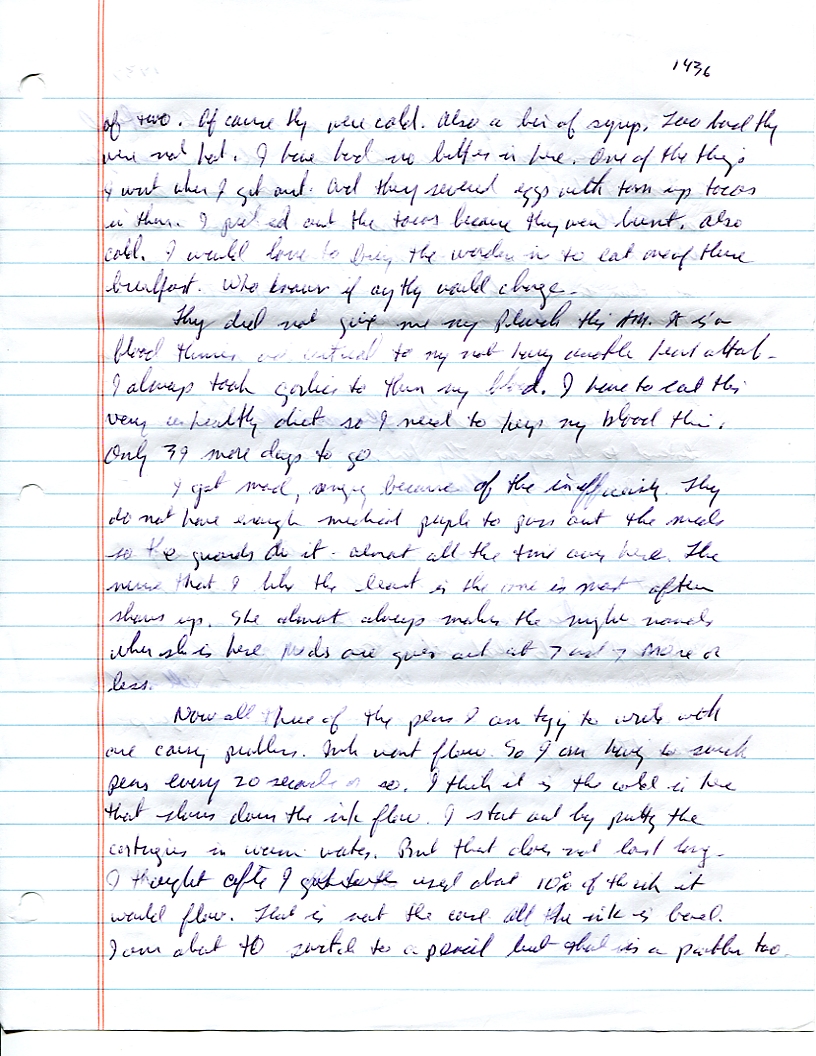 1436
of two. Of cause thy were cold. Also a bit of syrup. Too bad thy
were not hot. I have had no butter in here. One of the things
I want when I get out. And they severed eggs with torn up tacos
in them. I pulled out the tacos because they were burnt. Also
cold. I would love to bring the warden in to eat one of these
breakfast. Who knows if any thg would change.
They did not give me my Plavik this AM. It is a
blood thinner and critical to my not having another heart attack.
I always took garlic to thin my blood. I have to eat this
very unhealthy diet so I need to keep my blood thin.
Only 39 more days to go.
I get mad, angry because of the inefficiency. They
do not have enough medical people to pass out the meds
so the guards do it - almost all the time over here. The
nurse that I like the least is the one is most often
shows up. She almost always makes the night rounds
when she is here. Meds are given out at 7 and 7 more or
less.
Now all three of the pens I am trying to write with
are causing problems. Ink wont flow. So I am having to switch
pens every 20 seconds or so. I think it is the cold in here
that slows down the ink flow. I start out by putting the
cartriges in warm water. But that does not last long.
I thought after I used about 10% of the ink it
would flow. That is not the case all the ink is
I am about to switch to a pencil but that is a problem too.